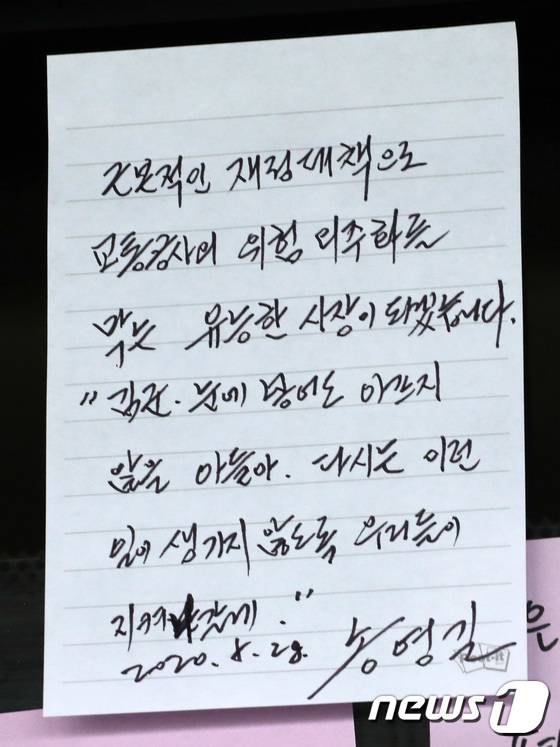 근본적인 재정대책으로
교통공사의 위험 외주화를
막는 유능한 사장이 되겠습니다.
"김군. 눈에 넣어도 아프지
않을 아들아. 다시는 이런
일이 생기지 않도록 우리들이
지켜갈게."
2020. 8. 28. 송영길
은
news1